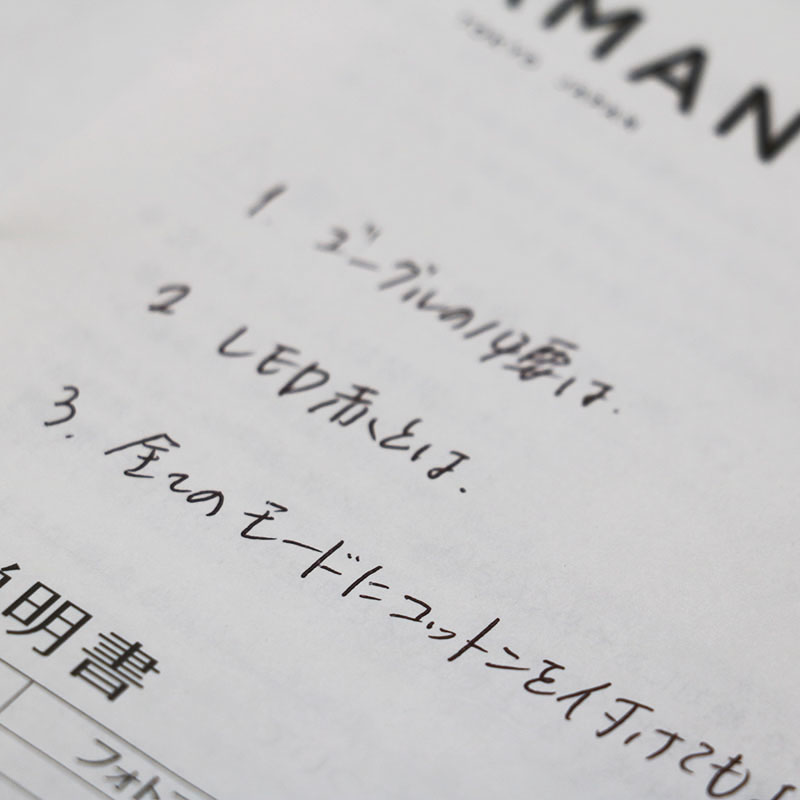 MAN
1. ゴーグルの必要は.
2 LED赤とは.
3. 全てのモードにコットンを付けても
明書
フォト